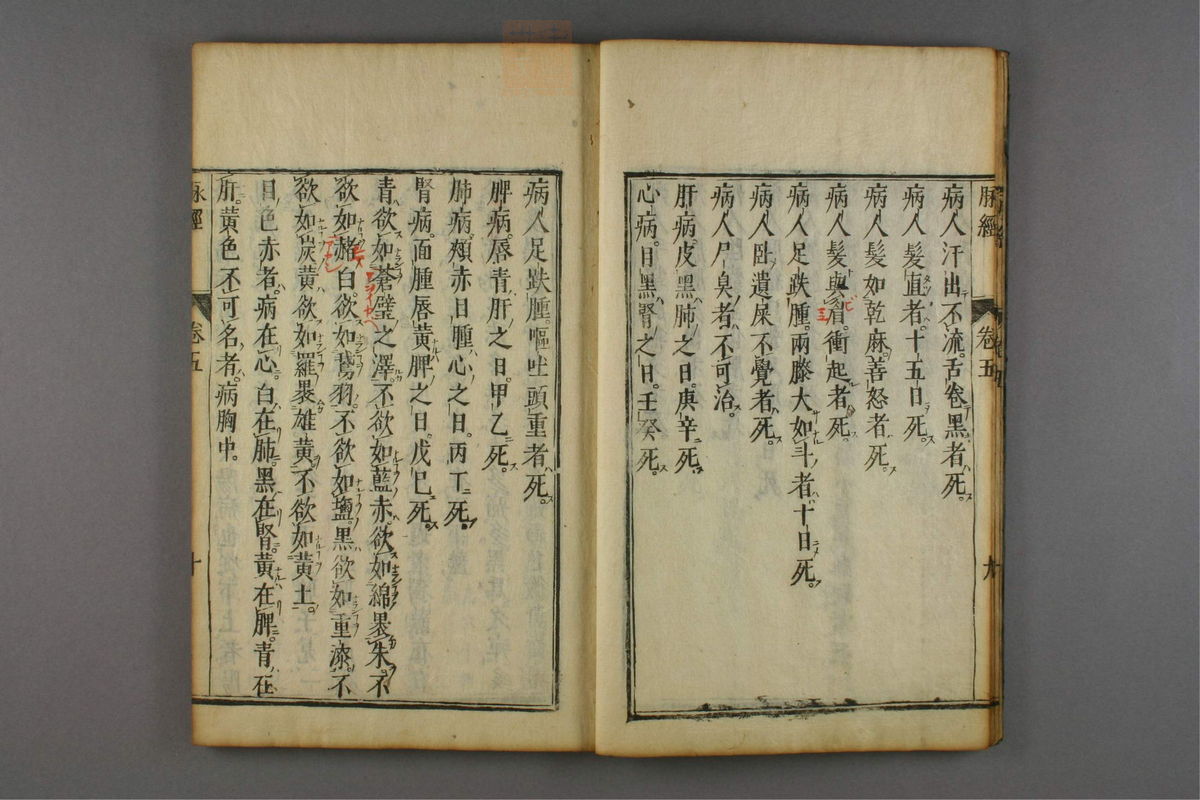 脉經
卷五
九
病人汗出不流舌卷黑者死
病人髮直者十五日死
病人髮如乾麻善怒者死
病人髮與眉衝起者死
病人足趺腫兩膝大如斗者十日死
病人臥遺屎不覺者死
病人尸臭者不可治
肝病皮黑肺之日庚辛死
心病目黑腎之日壬癸死
病人足趺腫嘔吐頭重者死
脾病唇青肝之日甲乙死
肺病頰赤目腫心之日丙丁死
腎病面腫唇黃脾之日戊巳死
青欲如蒼璧之澤不欲如藍赤欲如綿褁朱不
欲如赭白欲如鵞羽不欲如鹽黑欲如重漆不
欲如炭黃欲如羅褁雄黃不欲如黃土
目色赤者病在心白在肺黑在腎黃在脾青在
肝黃色不可名者病胸中
脉經
卷五
十